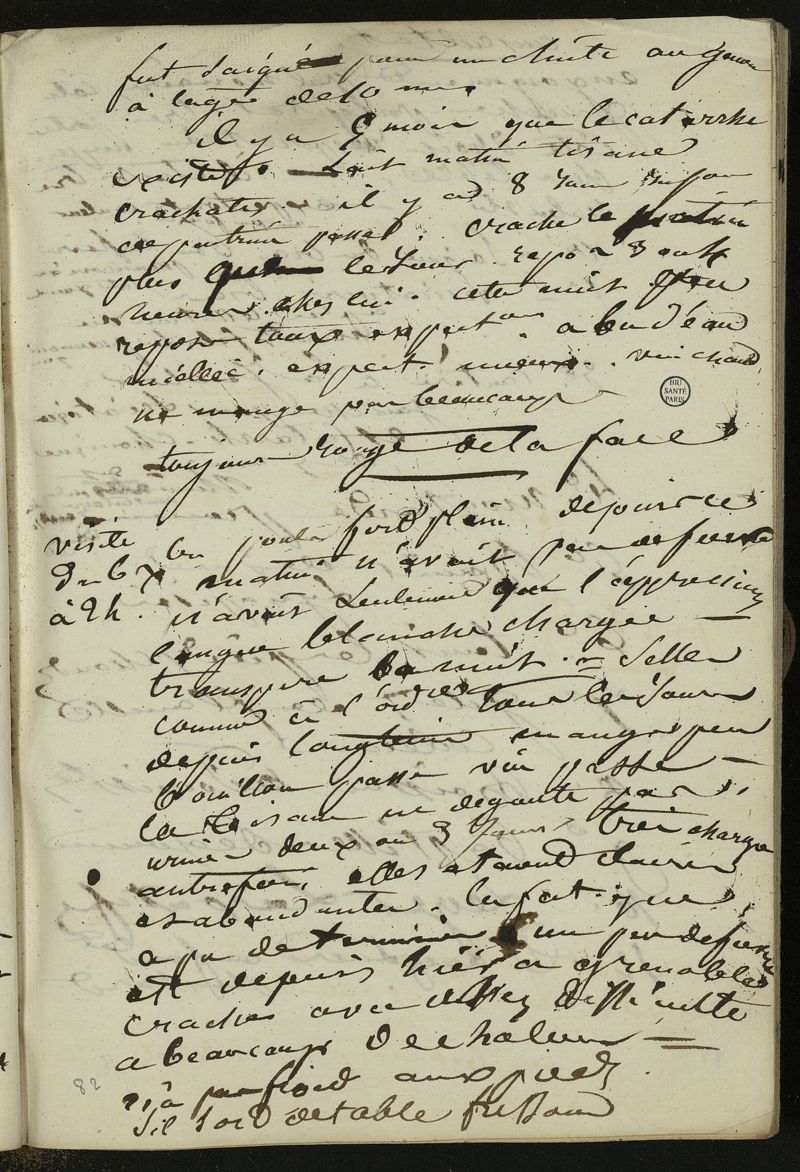 fut saigné pour un chute au genou
à lage de 10 ans.
il y a 9 moir que le catarrhe
existe. Lait matin tisane
crachats il y a 8 Jour
de poitrine passer. crache le matin
plus le Jour. repo 2 3 ou 4
heures. chez lui. cette nuit peu
repose toux expect on. a bu d'eau
miellée. expect. mieux. vin chaud
ne mange pas beaucoup
toujour rouge de la face
visite
du 6 x.
à 2h.
la pouls froid plein depuis ce
matin n'avoit pas de fievre
n'avoit seulement que l'oppression
langue blanche chargée —
transpire la nuit. = Selles
comme à l'ordre tous les Jours
depuis longtems mange peu
bouillon passe vin passe —
la tisane ne degoute pas.
urines deux ou 3 Jours, très chargé
autrefois, elles etaient claires
et abundantes. la fatigue
a pu determiner un peu de fievre
est depuis hier a grenobles
crache avec assez difficulté
a beaucoup de chaleur =
n'a pas froid aux pieds.
s'il sort de table
82
BIU
SANTÉ
PARIS